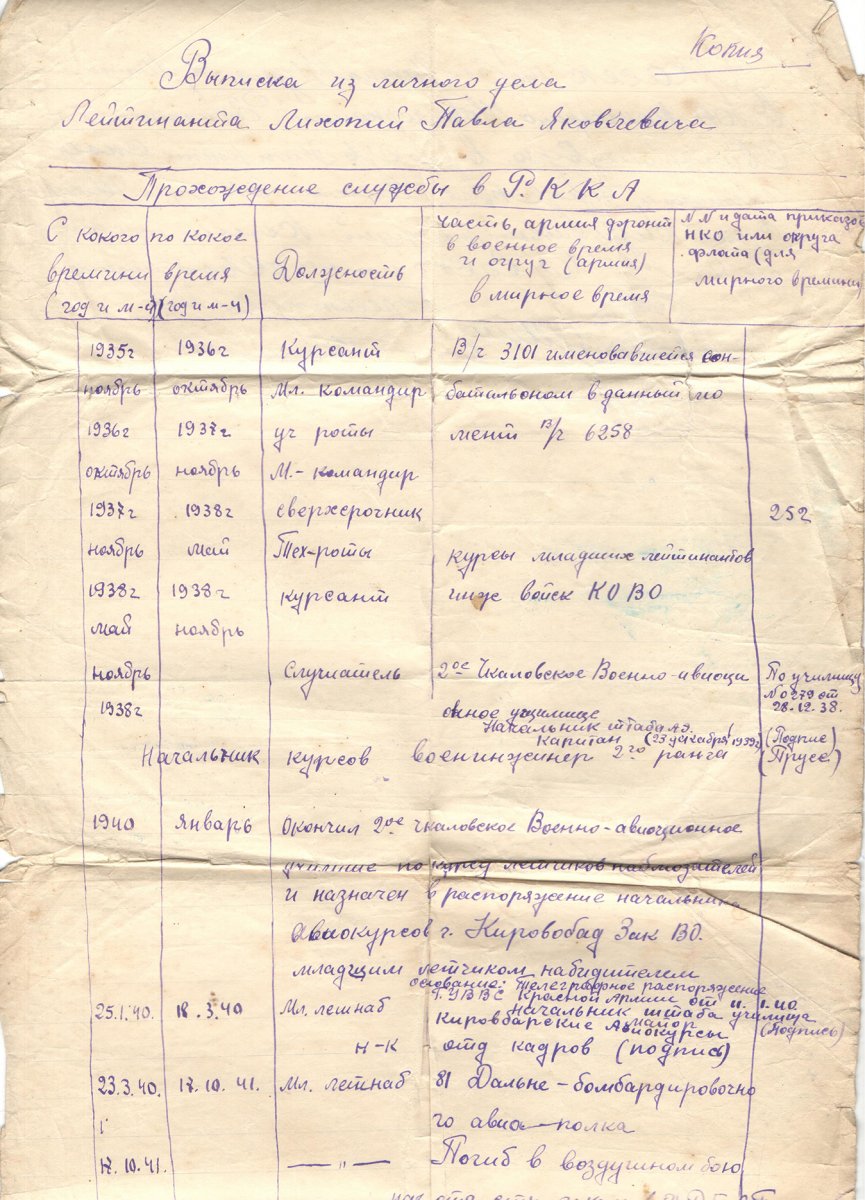 Копия
Выписка из личного дела
Лейтинанта Лихопий Павла Яковлевича
Прохождение службы в РККА
С кокого времини (год и м-ц) по кокое время (год и м-ц) Должность часть, армия фронт в военное время и огруг (армия) в мирное время №№ и дата приказов НКО или округа флота (для мирного времини)
1935г 1936г Курсант В/ч 3101 именовавшейся сон-
ноябрь октябрь Мл. командир батальоном в данный мо
1936г 1937г уч роты мент В/ч 6258
октябрь ноябрь М.- командир
1937г 1938г сверхсрочник 252
ноябрь май Тех-роты курсы младших лейтинантов
1938г 1938г курсант инж войск КОВО
май ноябрь
ноябрь Слушатель 2ое Чкаловское Военно-авиоци По училищу
1938г онное училище № 0279 от 28.12.38.
Начальник штаба АЭ.
Капитан (23 декабря 1939г) (Подпис)
Начальник курсов военинжинер 2го ранга (Прусс)
1940 январь Окончил 2ое Чкаловское Военно-авиоционное
училище по курсу летчиков наблюдателей
и назначен в распоряжение начальника
Авиокурсов г. Кировобад Зак ВО.
младшим летчиком набидителем
основание: Телеграфное распоряжение
УВВС Красной Армии от 11.1.40
25.1.40. 18.3.40 Мл. летнаб Начальник штаба училища
майор (Подпись)
Кировбарские Авиокурсы
н-к отд кадров (подпись)
23.3.40. 17.10.41. Мл. летнаб 81 Дальне-бомбардировочно
го авиа-полка
17.10.41. —〃— Погиб в воздушном бою